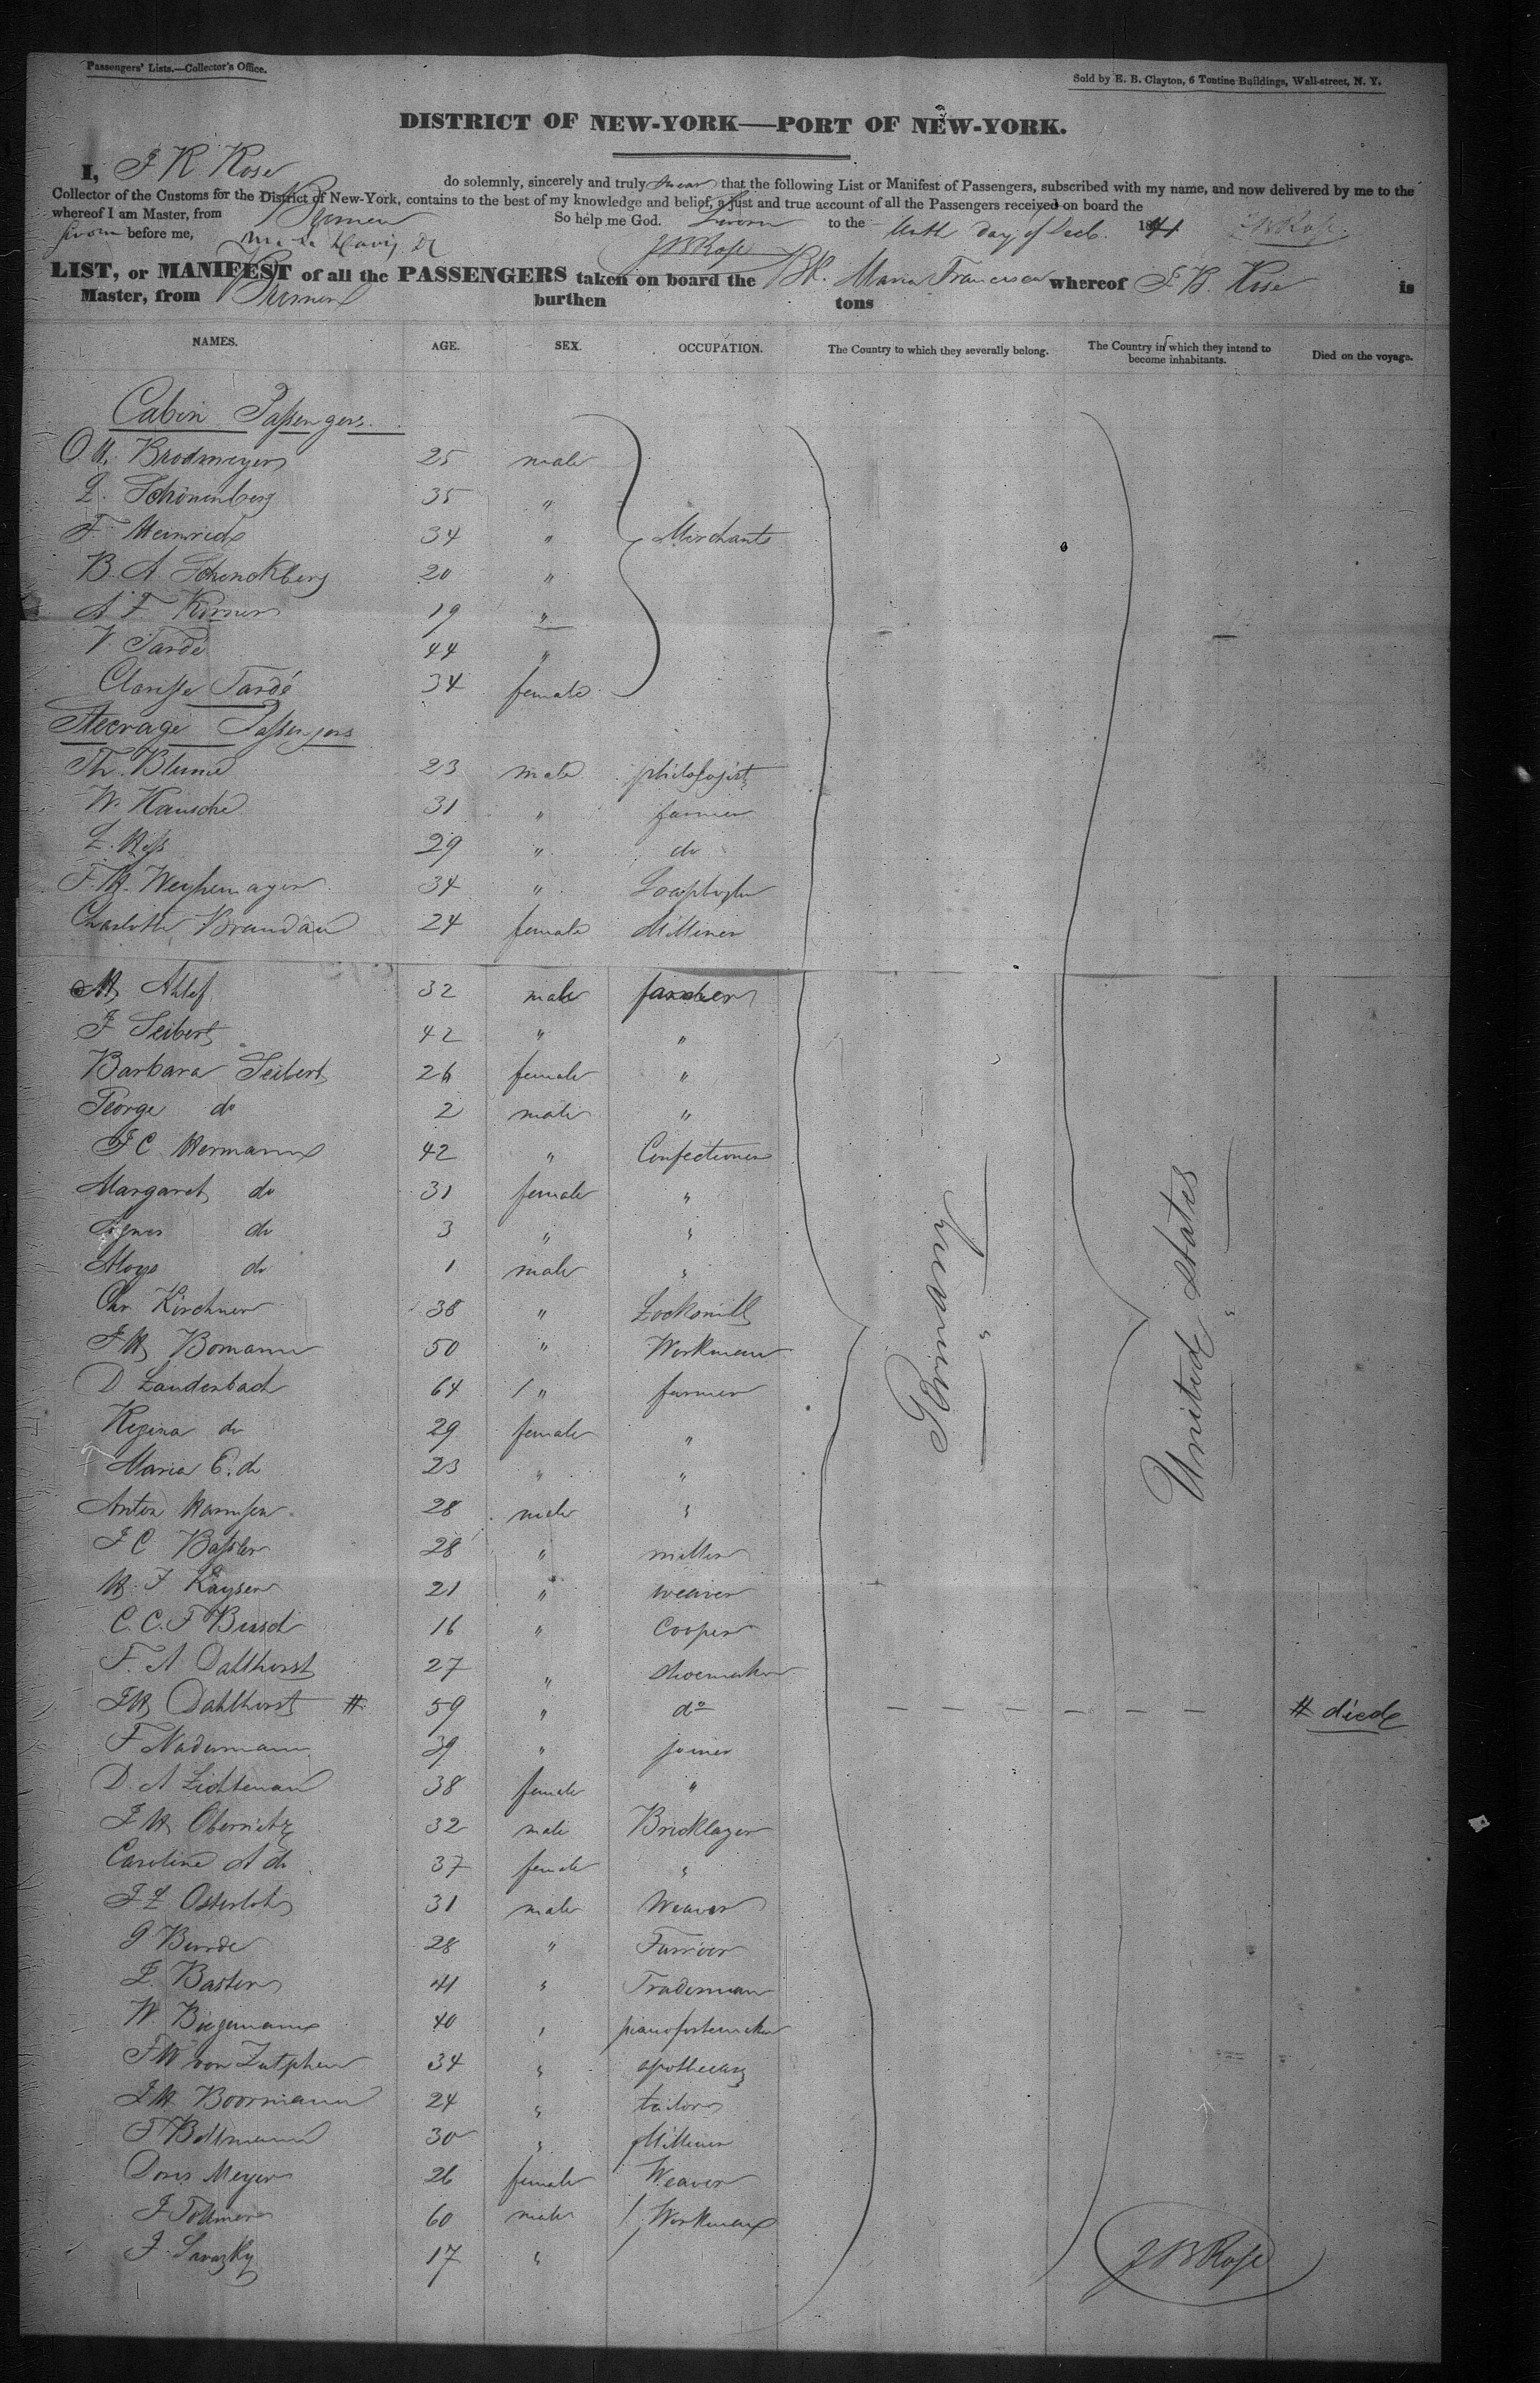 Passengers' Lists.—Collector's Office.
Sold by E. B. Clayton, 6 Tontine Buildings, Wall-street, N. Y.
DISTRICT OF NEW-YORK—PORT OF NEW-YORK.
I, J R Rose do solemnly, sincerely and truly swear that the following List or Manifest of Passengers, subscribed with my name, and now delivered by me to the
Collector of the Customs for the District of New-York, contains to the best of my knowledge and belief, a just and true account of all the Passengers received on board the
whereof I am Master, from Bremen So help me God. Sworn to the day of Decb. 1841 J B Rose
Sworn before me, J B Rose
LIST, or MANIFEST of all the PASSENGERS taken on board the Bk. Maria Francisca whereof J. B. Rose is
Master, from Bremen burthen tons
NAMES. AGE. SEX. OCCUPATION. The Country to which they severally belong. The Country in which they intend to become inhabitants. Died on the voyage.
Cabin Passengers
Brodmeyer 25 male
L. Schönenberg 35 "
F. Heinrich 34 " Merchants
B. A. Schenckberg 20 "
A F Körner 19 "
V. Tardé 44 "
Clarisse Tardé 34 female
Steerage Passengers
Th. Blume 23 male philologist
W. Hausche 31 " farmer
L. 29 " do
F. H. Weyhemayer 34 "
Charlotte Brandau 24 female Milliner
H Ahlef 32 male farmer
F Seibert 42 " "
Barbara Seibert 26 female "
George do 2 male "
J C Hermann 42 " Confectioner
Margaret do 31 female "
Agnes do 3 " "
Aloys do 1 male "
Chr. Kirchner 38 " Locksmith
J H Bomann 50 " Workman
D Laudenbach 64 " farmer
Regina do 29 female "
Maria E. do 23 " "
Anton Harmsen 28 male "
J C Bassler 28 " miller
H. F Kayser 21 " weaver
C. C. F Busch 16 " Cooper
F. A Dallhorst 27 " Shoemaker
J H Dahlhorst # 59 " do # died
F Nadermann 39 " joiner
D. A Lichtenau 38 female "
J H Obernitz 32 male Bricklayer
Caroline A do 37 female "
J L Osterloh 31 male Weaver
G Burde 28 " Farrier
L. Basten 41 " Tradesman
W. Biegemann 40 " pianofortemaker
F W von Zutphen 34 " apothecary
J H Boormann 24 " tailor
F Boltmann 30 " Milliner
Doris Meyer 26 female Weaver
J Tollmer 60 male Workman
J. Sarazky 17 "
Germany
United States
J B Rose